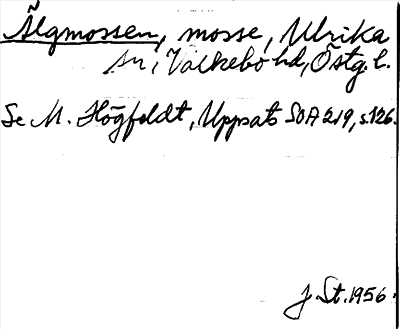 Älgmossen, mosse, Ulrika
sn, Valkebo hd, Östg. l.
Se M. Högfeldt, Uppsats SOA 219, s. 126.
J St. 1956.